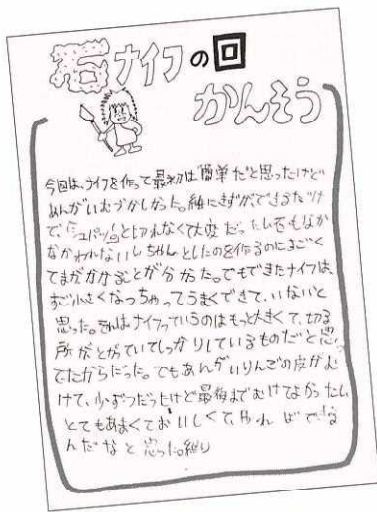 石ナイフの回
かんそう
今回は、ナイフを作って最初は簡単だと思ったけど
あんがいむずかしかった。紙にきずができるだけ
で、「シュパッ」と切れなくて大変だったし石もなか
なかわれないしちゃんとしたのを作るのにすごく
てまがかかることが分かった。でもできたナイフは、
すごい小さくなっちゃってうまくできて、いないと
思った。それはナイフっていうのはもっと大きくて、切る
所がとがっていてしっかりしているものだと思っ
てたからだった。でもあんがいりんごの皮がむ
けて、少しずつだったけど最後までむけてよかったし
とてもあまくておいしくて、やればできる
んだなと思った。終り